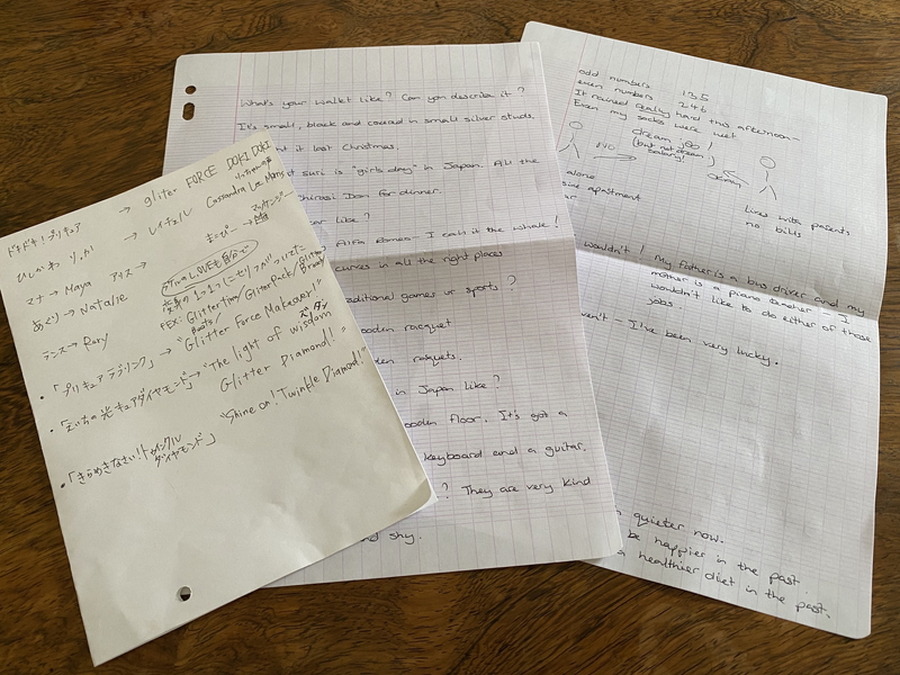 ドキドキ！プリキュア → gliter FORCE DOKI DOKI
ひしかわ りっか → レイチェル Cassandra Lee Morris
マナ→ Maya アリス→
あぐり→ Natalie
ランス→ Rory
アイテムのLOVEも自分で
EX: Glitter Time/ Glitter Pack/
・「プリキュア ラブリンク」→ "Glitter Force Makeover!"
・「えいちの光 キュアダイヤモンド」→ "The light of wisdom
Glitter Diamond!!"
・「きらめきなさい！トゥインクル
ダイヤモンド」 "Shine on! Twinkle Diamond!"
What's your wallet like? Can you describe it?
It's small, black and covered in small silver studs.
it last Christmas.
suri is "girls day" in Japan. All the
Chirasi Don for dinner.
car like?
Alfa Romeo - I call it the whale!
curves in all the right places
traditional games or sports?
wooden racquet
raquets.
in Japan like?
wooden floor. It's got a
keyboard and a guitar.
? They are very kind
and shy.
odd numbers 135
even numbers 246
It rained really hard this afternoon -
Even my socks were wet
dream job!
(but not dream
salary!)
NO
alone
apartment
Lives with parents
no bills
wouldn't! My father is a bus driver and my
mother is a piano teacher - I
wouldn't like to do either of those
jobs.
haven't - I've been very lucky.
quieter now.
be happier in the past
a healthier diet in the past.